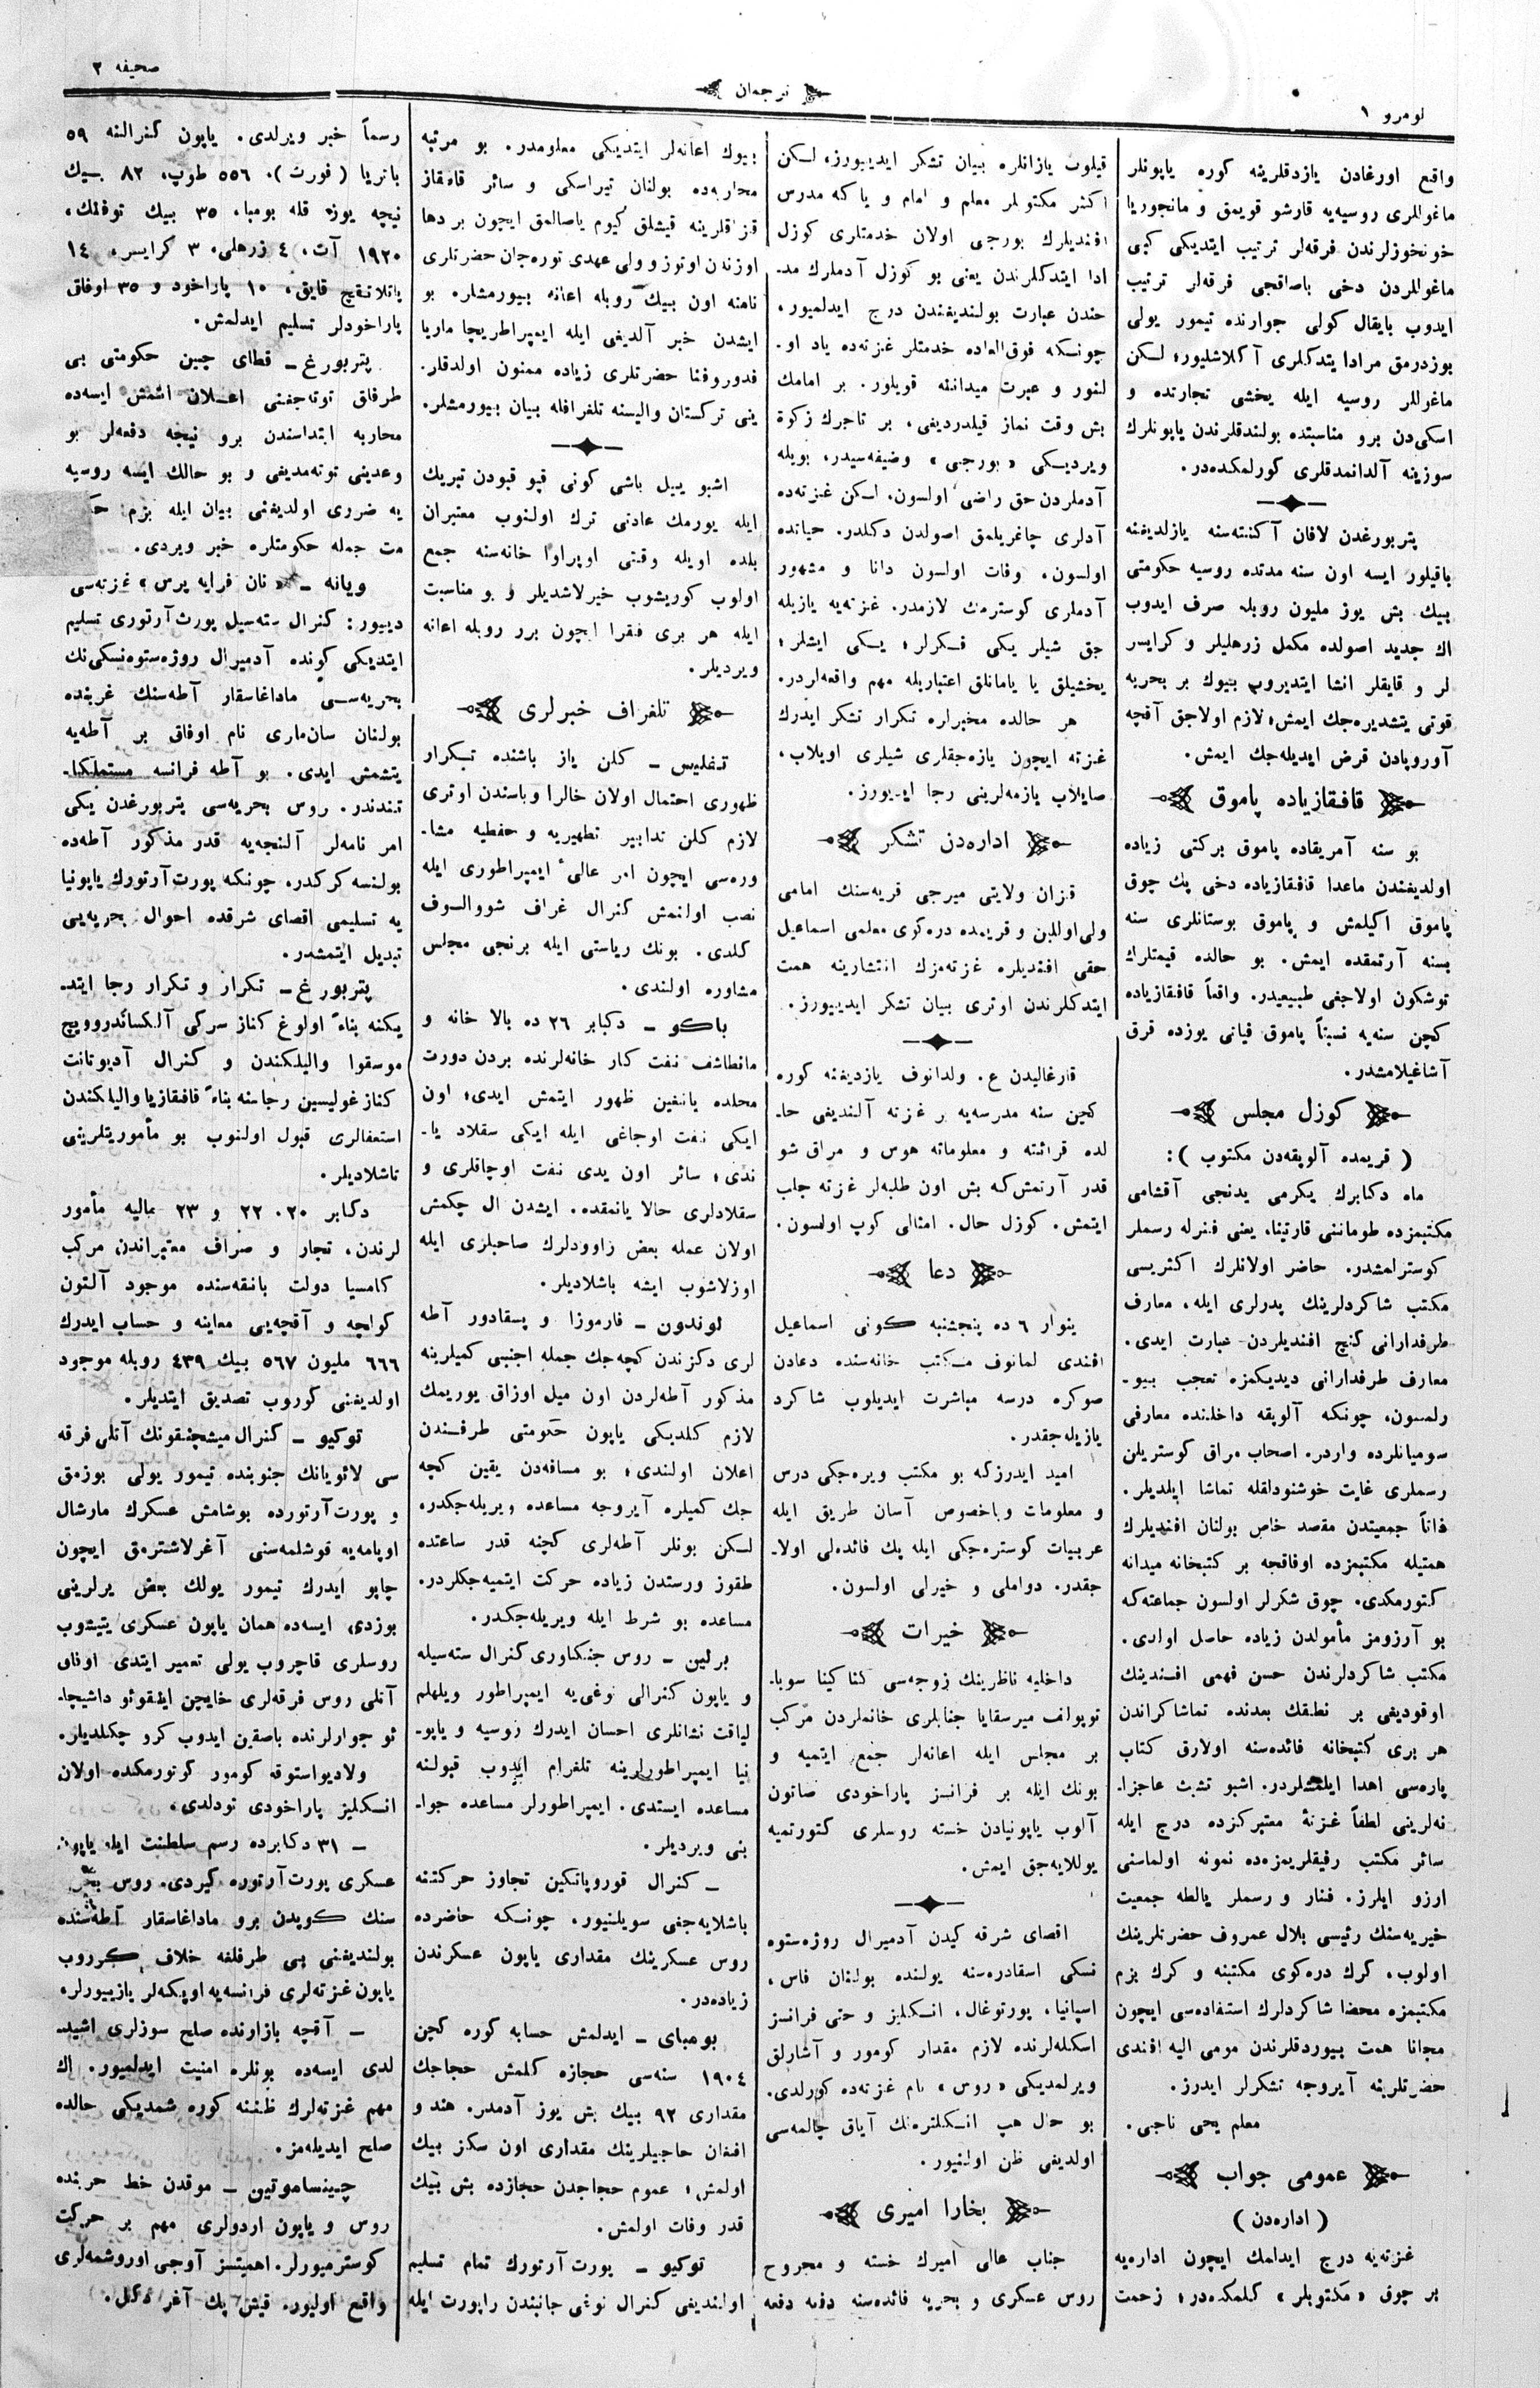 لومرو ١
ترجمان
صحیفه ٢
واقع اورغادن یازدقلرینه کوره یاپونلر
ماغوللری روسیه‌یه قارشو قویمق و مانجوریا
خونخوزلرندن فرقه‌لر ترتیب ایتدیکی کبی
ماغوللردن دخی باصاقجی فرقه‌لر ترتیب
ایدوب بایقال کولی جوارنده تیمور یولی
بوزدرمق مرادا یتدکلری آکلاشلیور؛ لسکن
ماغوللر روسیه ایله یخشی تجارتده و
اسکی‌دن برو مناسبتده بولندقلرندن یاپونلرك
سوزینه آلدانمدقلری کورلمکده‌در.
پتربورغدن لافان آکنتسنه یازلدیغنه
باقیلور ایسه اون سنه مدتده روسیه حکومتی
بیك بش یوز ملیون روبله صرف ایدوب
اك جدید اصولده مکمل زرهلیلر و کرایسر
لر و قایقلر انشا ایتدیروب بیوك بر بحریه
قوتی یتشدیره‌جك ایمش؛ لازم اولاجق آقچه
آوروپادن قرض ایدیله‌جك ایمش.
قافقازیاده پاموق
بو سنه آمریقاده پاموق برکتی زیاده
اولدیغندن ماعدا قافقازیاده دخی پك چوق
پاموق اکیلمش و پاموق بوستانلری سنه
بسنه آرتمقده ایمش. بو حالده قیمتلرك
توشکون اولاجغی طبیعیدر. واقعاً قافقازیاده
کچن سنه‌یه نسبتاً پاموق قیانی یوزده قرق
آشاغیلامشدر.
کوزل مجلس
( قریمده آلوپقه‌دن مکتوب ):
ماه دکابرك یکرمی یدنجی آقشامی
مکتبمزده طوماننی قارتینا، یعنی فنرله رسملر
کوسترلمشدر. حاضر اولانلرك اکثریسی
مکتب شاکردلرینك پدرلری ایله، معارف
طرفدارانی کنج افندیلردن عبارت ایدی.
معارف طرفدارانی دیدیکمزه تعجب بیو-
رلمسون، چونکه آلوپقه داخلنده معارفی
سومیانلرده واردر. اصحاب مراق کوستریلن
رسملری غایت خوشنودلقله تماشا ایلدیلر.
ذاتاً جمعیتدن مقصد خاص بولنان افندیلرك
همتیله مکتبمزده اوفاقجه بر کتبخانه میدانه
کتورمکدی. چوق شکرلر اولسون جماعته‌که
بو آرزومز مأمولدن زیاده حاصل اولدی.
مکتب شاکردلرندن حسن فهمی افندینك
اوقودیغی بر نطقك بعدنده تماشاکراندن
هر بری کتبخانه فائده‌سنه اولارق کتاب
پاره‌سی اهدا ایلمشلردر. اشبو تشبث عاجزا-
نه‌لرینی لطفاً غزتهٔ معتبرکزده درج ایله
سائر مکتب رفیقلریمزه‌ده نمونه اولماسنی
ارزو ایلرز. فنار و رسملر یالطه جمعیت
خیریه‌سنك رئیسی بلال عمروف حضرتلرینك
اولوب، کرك دره‌کوی مکتبنه و کرك بزم
مکتبمزه محضا شاکردلرك استفاده‌سی ایچون
مجانا همت بیوردقلرندن مومی الیه افندی
حضرتلرینه آیروجه تشکرلر ایدرز.
معلم یحی ناجی.
عمومی جواب
( اداره‌دن )
غزته‌یه درج ایدلمك ایچون اداره‌یه
بر چوق «مکتوبلر» کلمکده‌در؛ زحمت
قیلوب یازانلره بیان تشکر ایدییورز، لسکن
اکثر مکتوبلر معلم و امام و یا که مدرس
افندیلرك بورجی اولان خدمتلری کوزل
ادا ایتدکلرندن یعنی بو کوزل آدملرك مد-
حندن عبارت بولندیغندن درج ایدلمیور،
چونسکه فوق‌العاده خدمتلر غزته‌ده یاد او-
لنور و عبرت میدانه قویلور. بر امامك
بش وقت نماز قیلدردیغی، بر تاجرك زکوة
ویردیسکی «بورجی» وضیفه‌سیدر، بویله
آدملردن حق راضیْ اولسون. لسکن غزته‌ده
آدلری چاغریلمق اصولدن دکلدر. حیاتده
اولسون، وفات اولسون دانا و مشهور
آدملری کوسترمك لازمدر. غزته‌یه یازیله
جق شیلر یکی فسکرلر؛ یسکی ایشلر؛
یخشیلق یا یامانلق اعتباریله مهم واقعه‌لردر.
هر حالده مخبرلره تکرار تشکر ایدرك
غزته ایچون یازه‌جقلری شیلری اویلاب،
صایلاب یازمه‌لرینی رجا ایدیورز.
اداره‌دن تشکر
قزان ولایتی میرجی قریه‌سنك امامی
ولی‌اوللین و قریمده دره‌کوی معلمی اسماعیل
حقی افندیلره غزته‌مزك انتشارینه همت
ایتدکلرندن اوتری بیان تشکر ایدییورز.
قارغالیدن ع. ولدانوف یازدیغنه کوره
کچن سنه مدرسه‌یه بر غزته آلندیغی حا-
لده قرائته و معلوماته هوس و مراق شو
قدر آرتمش‌که بش اون طلبه‌لر غزته جلب
ایتمش. کوزل حال. امثالی کوپ اولسون.
دعا
ینوار ٦ ده پنجشنبه کونی اسماعیل
افندی لمانوف مکتب خانه‌سنده دعادن
صوکره درسه مباشرت ایدیلوب شاکرد
یازیله‌جقدر.
امید ایدرزکه بو مکتب ویره‌جکی درس
و معلومات وباخصوص آسان طریق ایله
عربیات کوستره‌جکی ایله پك فائده‌لی اولا-
جقدر. دواملی و خیرلی اولسون.
خیرات
داخلیه ناظرینك زوجه‌سی کنا کینا سویا-
توپولف میرسقایا جنابلری خانه‌لردن مرکب
بر مجلس ایله اعانه‌لر جمع ایتمیه و
بونك ایله بر فرانسز پاراخودی صاتون
آلوب یاپونیادن خسته روسلری کتورتمیه
یوللایه‌جق ایمش.
اقصای شرقه کیدن آدمیرال روژه‌ستوه
نسکی اسقادره‌سنه یولنده بولنان فاس،
اسپانیا، پورتوغال، انسکلیز و حتی فرانسز
اسکله‌لرنده لازم مقدار کومور و آشارلق
ویرلمدیکی «روس» نام غزته‌ده کورلدی.
بو حال هپ انسکلتره‌نك آیاق چالمه‌سی
اولدیغی ظن اولنیور.
بخارا امیری
جناب عالی امیرك خسته و مجروح
روس عسکری و بحریه فائده‌سنه دفعه دفعه
بیوك اعانه‌لر ایتدیکی معلومدر. بو مرتبه
محاربه‌ده بولنان تیراسکی و سائر قافقاز
قزاقلرینه قیشلق کیوم یاصالمق ایچون بر دها
اوزندن اوتوز و ولی عهدی توره‌جان حضرتلری
نامنه اون بیك روبله اعانه بیورمشلر. بو
ایشدن خبر آلدیغی ایله ایمپراطریچا ماریا
فدوروفنا حضرتلری زیاده ممنون اولدقلر.
ینی ترکستان والیسنه تلغرافله بیان بیورمشلر.
اشبو ییل باشی کونی قپو قپودن تبریك
ایله یورمك عادتی ترك اولنوب معتبران
بلده اویله وقتی اوپراوا خانه‌سنه جمع
اولوب کوریشوب خیرلاشدیلر و بو مناسبت
ایله هر بری فقرا ایچون برر روبله اعانه
ویردیلر.
تلغراف خبرلری
تفلیس ـ کلن یاز باشنده تسکرار
ظهوری احتمال اولان خالرا وباسندن اوتری
لازم کلن تدابیر تطهیریه و حفظیه مشا-
وره‌سی ایچون امر عالیْ ایمپراطوری ایله
نصب اولنمش کنرال غراف شووالسوف
کلدی. بونك ریاستی ایله برنجی مجلس
مشاوره اولندی.
باکو ـ دکبابر ٢٦ ده بالا خانه و
مانطاشف نفت کار خانه‌لرنده بردن دورت
محلده یانغین ظهور ایتمش ایدی؛ اون
ایکی نفت اوجاغی ایله ایکی سقلاد یا-
ندی؛ سائر اون یدی نفت اوجاقلری و
سقلادلری حالا یانمقده. ایشدن ال چکمش
اولان عمله بعض زاوودلرك صاحبلری ایله
اوزلاشوب ایشه باشلادیلر.
لوندون ـ فارموزا و پسقادور آطه
لری دکزندن کچه‌جك جمله اجنبی کمیلرینه
مذکور آطه‌لردن اون میل اوزاق یوریمك
لازم کلدیکی یاپون حکومتی طرفندن
اعلان اولندی؛ بو مسافه‌دن یقین کچه
جك کمیلره آیروجه مساعده ویریله‌جکدر،
لسکن بونلر آطه‌لری کچنه قدر ساعتده
طقوز ورستدن زیاده حرکت ایتمیه‌جکلردر.
مساعده بو شرط ایله ویریله‌جکدر.
برلین ـ روس جنکاوری کنرال سته‌سیله
و یاپون کنرالی نوغی‌یه ایمپراطور ویلهلم
لیاقت نشانلری احسان ایدرك روسیه و یاپو-
نیا ایمپراطورلرینه تلغرام ایدوب قبولنه
مساعده ایستدی. ایمپراطورلر مساعده جوا-
بنی ویردیلر.
ـ کنرال قوروپاتکین تجاوز حرکتنه
باشلایه‌جغی سویلنیور. چونسکه حاضرده
روس عسکرینك مقداری یاپون عسکرندن
زیاده‌در.
بومبای ـ ایدلمش حسابه کوره کچن
١٩٠٤ سنه‌سی حجازه کلمش حجاجك
مقداری ٩٢ بیك بش یوز آدمدر. هند و
افغان حاجیلرینك مقداری اون سکز بیك
اولمش؛ عموم حجاجدن حجازده بش بیك
قدر وفات اولمش.
توکیو ـ پورت آرتورك تمام تسلیم
اولندیغی کنرال نوغی جانبندن راپورت ایله
رسماً خبر ویرلدی. یاپون کنرالنه ٥٩
باتریا (فورت)، ٥٥٦ طوپ، ٨٢ بیك
نیچه یوز قله بومبا، ٣٥ بیك توفنك،
١٩٢٠ آت، ٤ زرهلی، ٣ کرایسر، ١٤
پاتلاتقیچ قایق، ١٠ پاراخود و ٣٥ اوفاق
پاراخودلر تسلیم ایدلمش.
پتربورغ ـ قطای چین حکومتی بی
طرفاق توته‌جغنی اعلان اتمش ایسه‌ده
محاربه ابتداسندن برو نیجه دفعه‌لر بو
وعدینی توته‌مدیغی و بو حالك ایسه روسیه
یه ضروری اولدیغنی بیان ایله بزم
مت جمله حکومتلره خبر ویردی.
ویانه ـ «نان فرایه پرس» غزته‌سی
دییور: کنرال سته‌سیل پورت‌آرتوری تسلیم
ایتدیکی کونده آدمیرال روژه‌ستوه‌نسکی‌نك
بحریه‌سی ماداغاسقار آطه‌سنك غربنده
بولنان سان‌ماری نام اوفاق بر آطه‌یه
یتشمش ایدی. بو آطه فرانسه مستملکا-
تندندر. روس بحریه‌سی پتربورغدن یکی
امر نامه‌لر آلنجه‌یه قدر مذکور آطه‌ده
بولنسه کرکدر. چونکه پورت آرتورك یاپونیا
یه تسلیمی اقصای شرقده احوال بحریه‌یی
تبدیل ایتمشدر.
پتربورغ ـ تکرار و تکرار رجا ایتد-
یکنه بناءً اولوغ کناز سرکی آلکساندروویچ
موسقوا والیلکندن و کنرال آدیوتانت
کناز غولیسین رجاسنه بناءً قافقازیا والیلکندن
استعفالری قبول اولنوب بو مأموریتلرینی
تاشلادیلر.
دکابر ٢٠، ٢٢ و ٢٣ مالیه مأمور
لرندن، تجار و صراف معتبراندن مرکب
کامسیا دولت بانقه‌سنده موجود آلتون
کواچه و آقچه‌یی معاینه و حساب ایدرك
٦٦٦ ملیون ٥٦٧ بیك ٤٣٩ روبله موجود
اولدیغنی کوروب تصدیق ایتدیلر.
توکیو ـ کنرال میشچنقونك آتلی فرقه
سی لائویانك جنوبنده تیمور یولی بوزمق
و پورت آرتورده بوشامش عسکرك مارشال
اویامه‌یه قوشلمه‌سنی آغرلاشترمق ایچون
چاپو ایدرك تیمور یولك بعض یرلرینی
بوزدی؛ ایسه‌ده همان یاپون عسکری یتیشوب
روسلری قاچروب یولی تعمیر ایتدی اوفاق
آتلی روس فرقه‌لری خایچن اینقوئو داشیچا-
ئو جوارلرنده باصقین ایدوب کرو چکلدیلر.
ولادیواستوقه کومور کوتورمکده اولان
انسکلیز پاراخودی توتلدی.
ـ ٣١ دکابرده رسم سلطنت ایله یاپون
عسکری پورت آرتوره کیردی. روس
سنك کوپدن برو ماداغاسقار آطه‌سنده
بولندیغنی بی طرفلغه خلاف کوروب
یاپون غزته‌لری فرانسه‌یه اوپکه‌لر یازییورلر.
ـ آقچه بازارنده صلح سوزلری اشید-
لدی ایسه‌ده بونلره امنیت ایدلمیور. اك
مهم غزته‌لرك ظننه کوره شمدیکی حالده
صلح ایدیله‌مز.
چینساموتین ـ موقدن خط حربنده
روس و یاپون اردولری مهم بر حرکت
کوسترمیورلر. اهمیتسز آوجی اوروشمه‌لری
واقع اولیور. قیش پك آغر دکل.